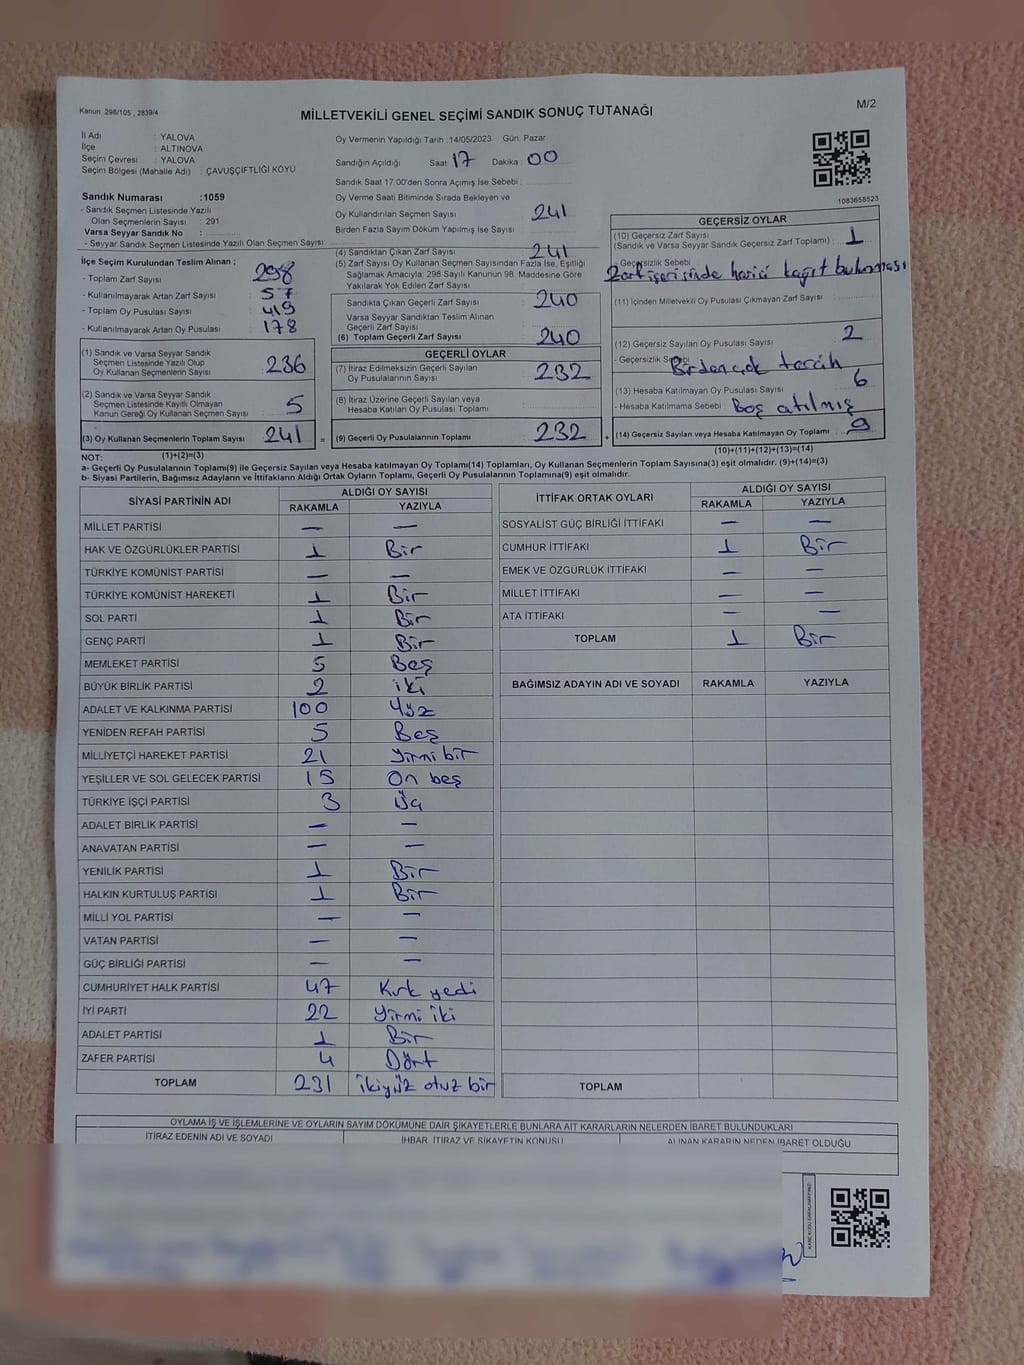 Kanun 298/105 , 2839/4
MİLLETVEKİLİ GENEL SEÇİMİ SANDIK SONUÇ TUTANAĞI
M/2
İl Adı : YALOVA
İlçe : ALTINOVA
Seçim Çevresi : YALOVA
Seçim Bölgesi (Mahalle Adı) : ÇAVUŞÇİFTLİĞİ KÖYÜ
Sandık Numarası :1059
- Sandık Seçmen Listesinde Yazılı
Olan Seçmenlerin Sayısı : 291
Varsa Seyyar Sandık No :
- Seyyar Sandık Seçmen Listesinde Yazılı Olan Seçmen Sayısı:
İlçe Seçim Kurulundan Teslim Alınan ;
- Toplam Zarf Sayısı : 298
- Kullanılmayarak Artan Zarf Sayısı : 57
- Toplam Oy Pusulası Sayısı : 419
- Kullanılmayarak Artan Oy Pusulası : 178
(1) Sandık ve Varsa Seyyar Sandık
Seçmen Listesinde Yazılı Olup
Oy Kullanan Seçmenlerin Sayısı : 236
(2) Sandık ve Varsa Seyyar Sandık
Seçmen Listesinde Kayıtlı Olmayan
Kanun Gereği Oy Kullanan Seçmen Sayısı : 5
(3) Oy Kullanan Seçmenlerin Toplam Sayısı : 241 =
(1)+(2)=(3)
Oy Vermenin Yapıldığı Tarih :14/05/2023 Gün: Pazar
Sandığın Açıldığı Saat: 17 Dakika: 00
Sandık Saat 17:00'den Sonra Açımış İse Sebebi :
Oy Verme Saati Bitiminde Sırada Bekleyen ve
Oy Kullandırılan Seçmen Sayısı : 241
Birden Fazla Sayım Döküm Yapılmış İse Sayısı :
(4) Sandıktan Çıkan Zarf Sayısı : 241
(5) Zarf Sayısı Oy Kullanan Seçmen Sayısından Fazla İse, Eşitliği
Sağlamak Amacıyla; 298 Sayılı Kanunun 98. Maddesine Göre
Yakılarak Yok Edilen Zarf Sayısı :
Sandıkta Çıkan Geçerli Zarf Sayısı : 240
Varsa Seyyar Sandıktan Teslim Alınan
Geçerli Zarf Sayısı :
(6) Toplam Geçerli Zarf Sayısı : 240
GEÇERLİ OYLAR
(7) İtiraz Edilmeksizin Geçerli Sayılan
Oy Pusulalarının Sayısı : 232
(8) İtiraz Üzerine Geçerli Sayılan veya
Hesaba Katılan Oy Pusulası Toplamı :
(9) Geçerli Oy Pusulalarının Toplamı : 232 +
1083658523
GEÇERSİZ OYLAR
(10) Geçersiz Zarf Sayısı
(Sandık ve Varsa Seyyar Sandık Geçersiz Zarf Toplamı) : 1
- Geçersizlik Sebebi :
Zarf içerisinde harici kağıt bulunması
(11) İçinden Milletvekili Oy Pusulası Çıkmayan Zarf Sayısı :
(12) Geçersiz Sayılan Oy Pusulası Sayısı : 2
- Geçersizlik Sebebi: Birden çok tercih
(13) Hesaba Katılmayan Oy Pusulası Sayısı : 6
- Hesaba Katılmama Sebebi : Boş atılmış
(14) Geçersiz Sayılan veya Hesaba Katılmayan Oy Toplamı : 9
(10)+(11)+(12)+(13)=(14)
NOT:
a- Geçerli Oy Pusulalarının Toplamı(9) ile Geçersiz Sayılan veya Hesaba katılmayan Oy Toplam(14) Toplamları, Oy Kullanan Seçmenlerin Toplam Sayısına(3) eşit olmalıdır. (9)+(14)=(3)
b- Siyasi Partilerin, Bağımsız Adayların ve İttifakların Aldığı Ortak Oyların Toplamı, Geçerli Oy Pusulalarının Toplamına(9) eşit olmalıdır.
SİYASİ PARTİNİN ADI ALDIĞI OY SAYISI
RAKAMLA YAZIYLA
MİLLET PARTİSİ — —
HAK VE ÖZGÜRLÜKLER PARTİSİ 1 Bir
TÜRKİYE KOMÜNİST PARTİSİ — —
TÜRKİYE KOMÜNİST HAREKETİ 1 Bir
SOL PARTİ 1 Bir
GENÇ PARTİ 1 Bir
MEMLEKET PARTİSİ 5 Beş
BÜYÜK BİRLİK PARTİSİ 2 iki
ADALET VE KALKINMA PARTİSİ 100 Yüz
YENİDEN REFAH PARTİSİ 5 Beş
MİLLİYETÇİ HAREKET PARTİSİ 21 yirmi bir
YEŞİLLER VE SOL GELECEK PARTİSİ 15 On beş
TÜRKİYE İŞÇİ PARTİSİ 3 Üç
ADALET BİRLİK PARTİSİ — —
ANAVATAN PARTİSİ — —
YENİLİK PARTİSİ 1 Bir
HALKIN KURTULUŞ PARTİSİ 1 Bir
MİLLİ YOL PARTİSİ — —
VATAN PARTİSİ — —
GÜÇ BİRLİĞİ PARTİSİ — —
CUMHURİYET HALK PARTİSİ 47 Kırk yedi
İYİ PARTİ 22 yirmi iki
ADALET PARTİSİ 1 Bir
ZAFER PARTİSİ 4 Dört
TOPLAM 231 ikiyüz otuz bir
İTTİFAK ORTAK OYLARI ALDIĞI OY SAYISI
RAKAMLA YAZIYLA
SOSYALİST GÜÇ BİRLİĞİ İTTİFAKI — —
CUMHUR İTTİFAKI 1 Bir
EMEK VE ÖZGÜRLÜK İTTİFAKI — —
MİLLET İTTİFAKI — —
ATA İTTİFAKI — —
TOPLAM 1 Bir
BAĞIMSIZ ADAYIN ADI VE SOYADI RAKAMLA YAZIYLA
TOPLAM
OYLAMA İŞ VE İŞLEMLERİNE VE OYLARIN SAYIM DÖKÜMÜNE DAİR ŞİKAYETLERLE BUNLARA AİT KARARLARIN NELERDEN İBARET BULUNDUKLARI
İTİRAZ EDENİN ADI VE SOYADI İHBAR, İTİRAZ VE ŞİKAYETİN KONUSU ALINAN KARARIN NEDEN İBARET OLDUĞU